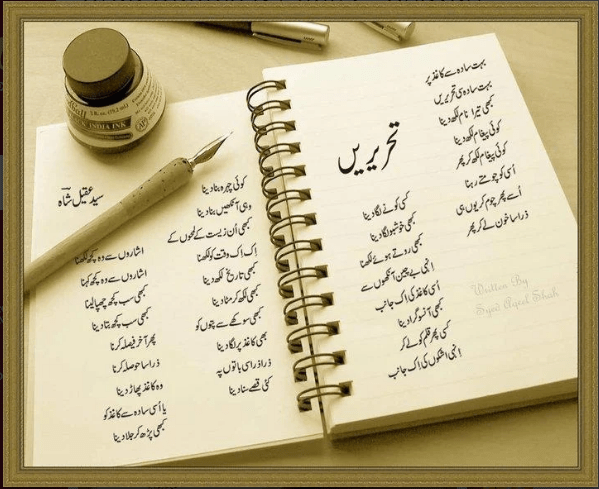 تحریریں
بہت سادہ سے کاغذ پر
بہت سادہ سی تحریریں
کبھی تیرا نام لکھ دینا
کوئی پیغام لکھ دینا
کوئی پیغام لکھ کر پھر
اُسی کو چومتے رہنا
اُسے پھر چوم کر یوں ہی
ذرا سا خون لے کر پھر
کسی کونے لگا دینا
کبھی خوشبو لگا دینا
کبھی روتے ہوئے لکھنا
انہی بے چین آنکھوں سے
اُسی کاغذ کی اک جانب
کبھی آنسو گرا دینا
کسی پھر قلم کو لے کر
انہی اشکوں کی اک جانب
Written By
Syed Aqeel Shah
سید عقیل شاہ
کوئی چہرہ بنا دینا
وہی آنکھیں بنا دینا
کبھی اُن زیست کے لمحوں کے
اِک اِک وقت کو لکھنا
کبھی تاریخ لکھ دینا
کبھی لکھ کر مٹا دینا
کبھی سوکھے سے پتوں کو
کبھی کاغذ پر لگا دینا
ذرا ذرا سی باتوں پہ
کئی قصے سنا دینا
اشاروں سے وہ کچھ لکھنا
اشاروں سے وہ کچھ کہنا
کبھی سب کچھ چھپا لینا
کبھی سب کچھ بتا دینا
پھر آخر فیصلہ کرنا
ذرا سا حوصلہ کرنا
وہ کاغذ پھاڑ دینا
یا اُسی سادہ سے کاغذ کو
کبھی پڑھ کر جلا دینا
INDIA INK